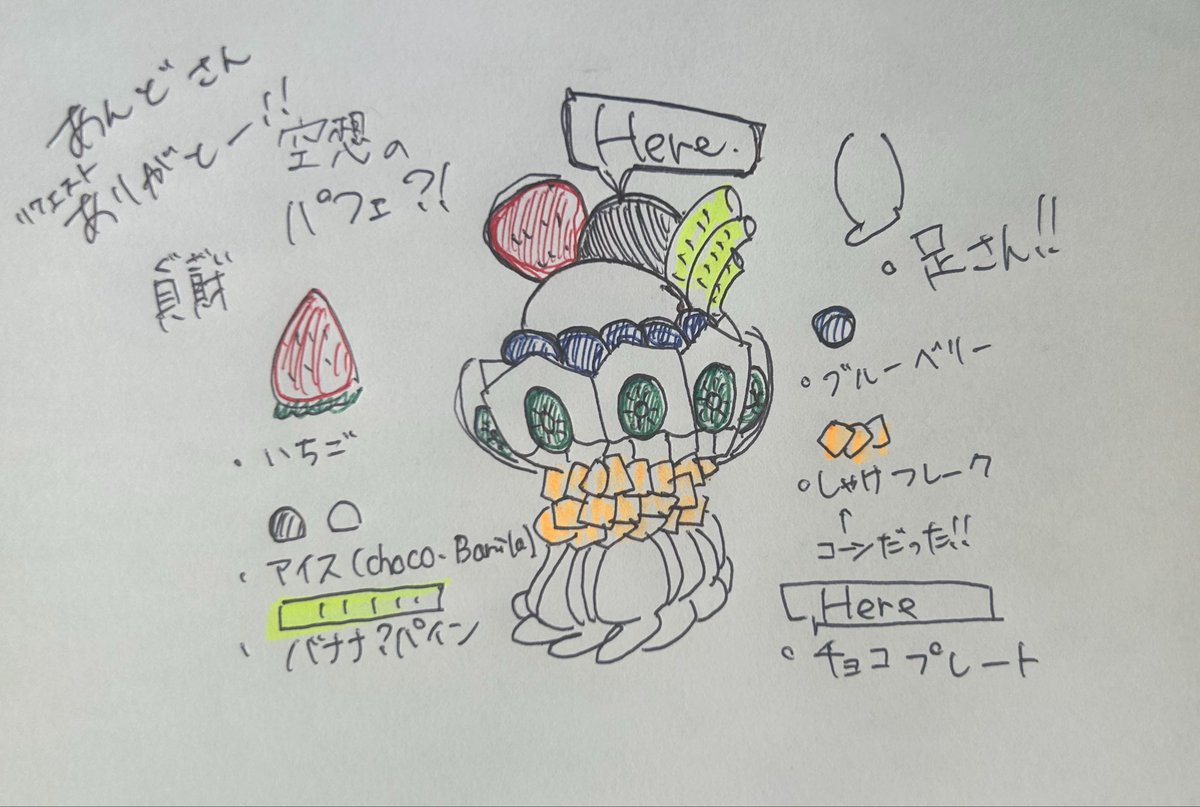 あんどさん
リクエスト
ありがとー!!
空想の
パフェ?!
Here.
ぐざい
いちご
アイス(choco・Banila)
バナナ?パイン
足さん!!
ブルーベリー
しゃけフレーク
↑
コーンだった!!
Here
チョコプレート